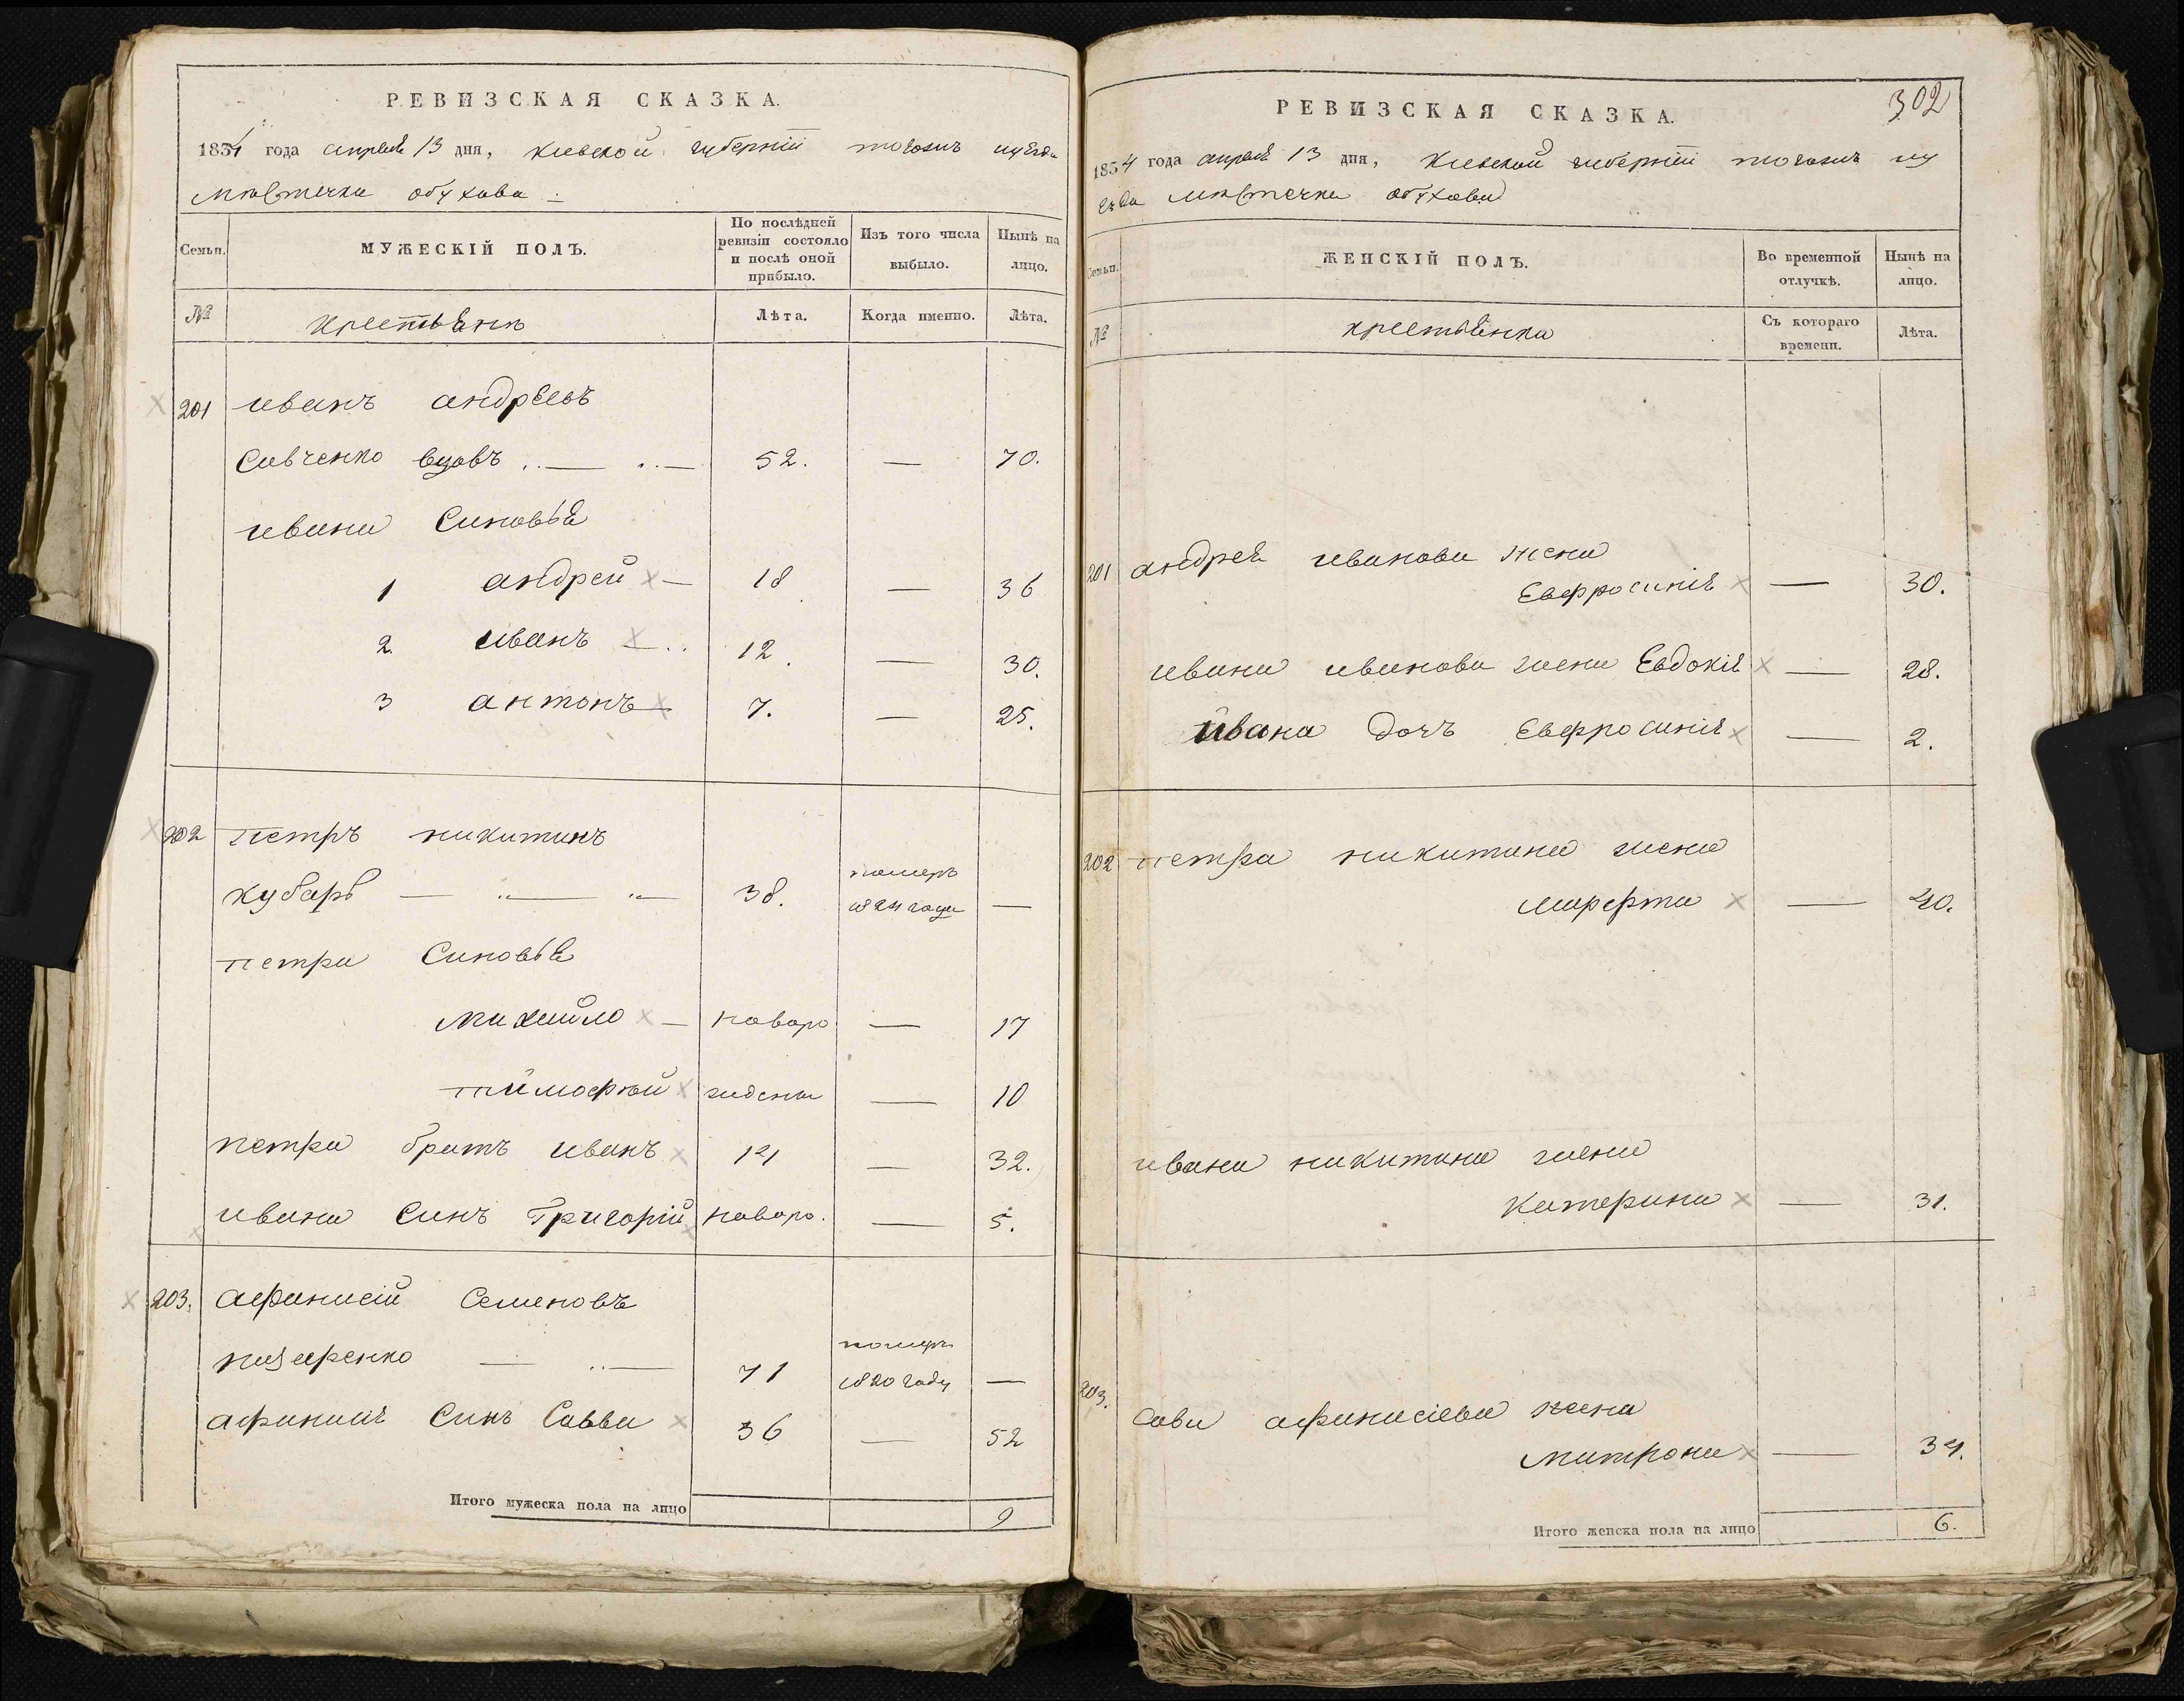 РЕВИЗСКАЯ СКАЗКА.
1834 года апреля 13 дня, Киевской губернїи тогожъ уезда
Местечка обухова
Семьи.
МУЖЕСКІЙ ПОЛЪ.
По послѣдней ревизіи состояло и послѣ оной прибыло.
Изъ того числа выбыло.
Нынѣ на лицо.
№
крестьяня
Лѣта.
Когда именно.
Лѣта.
201 иванъ андреевъ
Савченко вдовъ 52. — 70.
ивана Синовья
1 андрей — 18 — 36
2. иванъ 12. — 30.
3 антонъ 7. — 25.
202 петръ никитинъ
кубарь — 38. померъ 1824 года —
петра Синовья
михайло — новоро — 17
тимофѣй ждены — 10
петра братъ иванъ 14 — 32.
ивана Синъ Григорій новоро. — 5.
203. афанасій Семеновъ
— 71 померъ 1820 году —
афанасія Синъ Савва 36 — 52
Итого мужеска пола на лицо 9
302
РЕВИЗСКАЯ СКАЗКА.
1834 года апреля 13 дня, Киевской губернїи тогожъ уе
езда Местечка обухова
Семьи.
ЖЕНСКІЙ ПОЛЪ.
Во временной отлучкѣ.
Нынѣ на лицо.
№
крестьянка
Съ котораго времени.
Лѣта.
201 андрея иванова жена
Евфросинія — 30.
ивана иванова жена Евдокія — 28.
ивана дочъ Евфросинія — 2.
202 петра никитина жена
марфта — 40.
ивана никитина жена
катерина — 31.
203. Сави афанасіева жена
матрона — 34.
Итого женска пола на лицо 6.